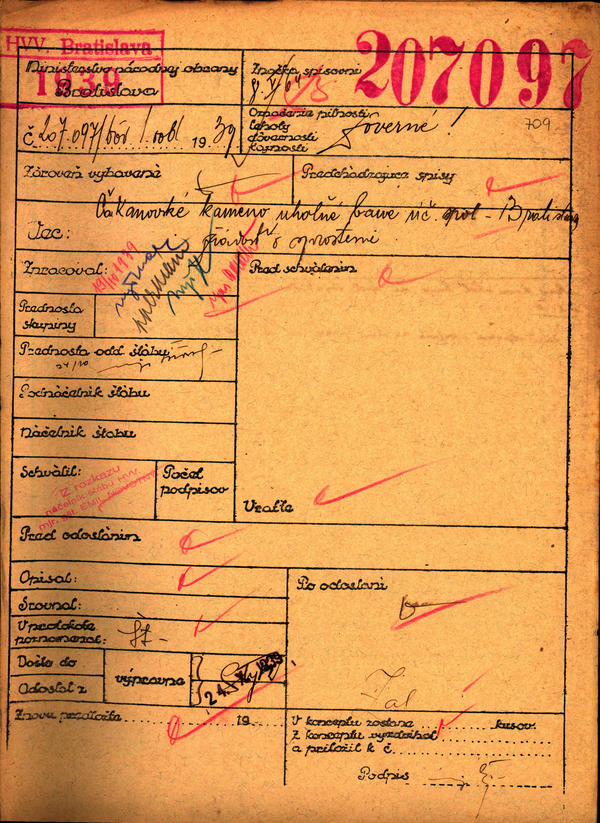 HVV. Bratislava
1839
207097
Ministerstvo národnej obrany
Bratislava
Značka spisovni
č. 207.097/dôv 1 robl 1939
Označenie pilnosti
lehoty
dôvernosti
tajnosti
Dôverné!
709
Zároveň vybavené
Predchádzajúce spisy
Vec:
Čakanovské kameno uholné bane úč. spol - Bratislava
žiadosť o
Zpracoval:
Pred schválením
Prednosta
skupiny
Prednosta odd. štábu
24/10
Podnáčelník štábu
Náčelník štábu
Schválil:
Z rozkazu
náčelník štábu HVV
Počet
podpisov
Vráťte
Pred odoslaním
Opísal:
Srovnal:
V protokole
poznamenal:
Po odoslaní
Došlo do
Odoslal z
výpravne
24. X. 1939
Znovu predložte 19
V koncepte zostáva kusov.
Z konceptu vyzdvihol
a priložil k č.
Podpis